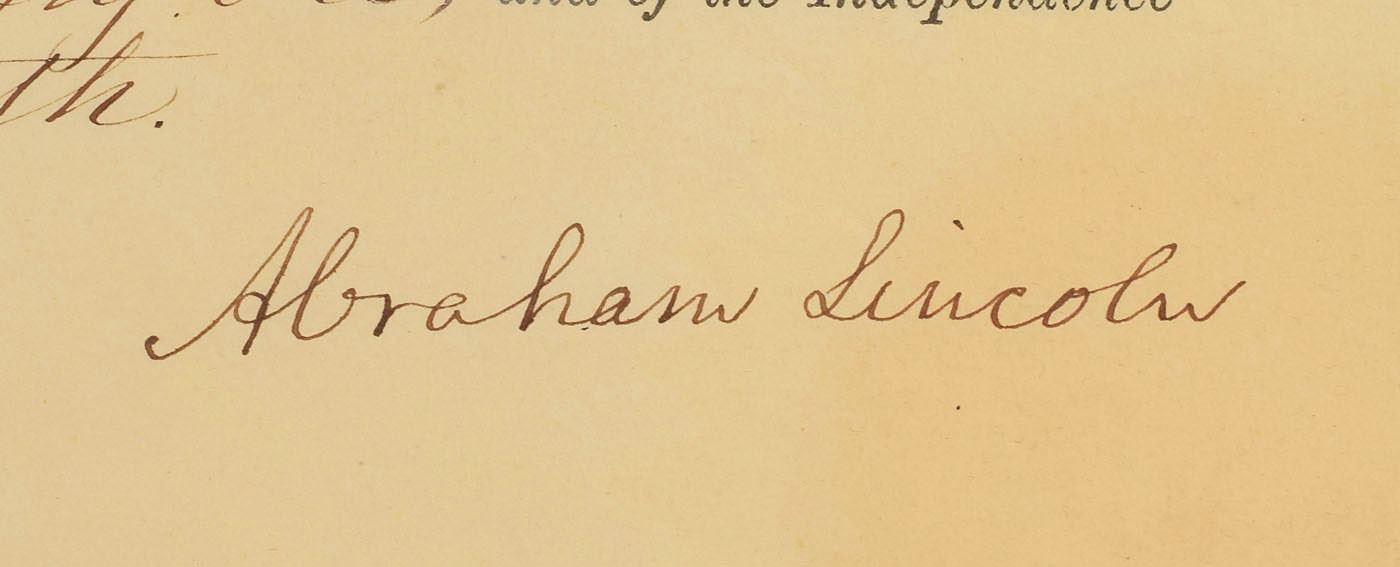 and of the Independence
th.
Abraham Lincoln